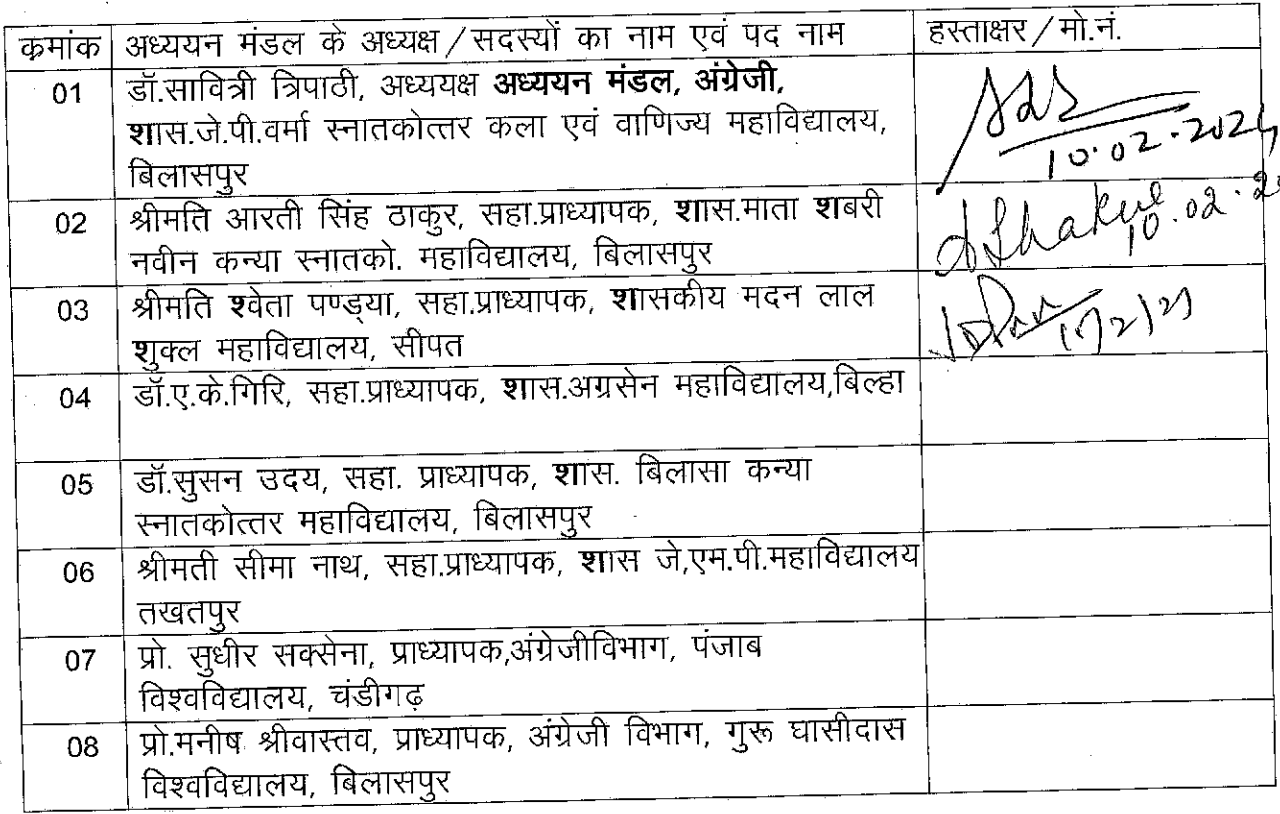 क्रमांक अध्ययन मंडल के अध्यक्ष/सदस्यों का नाम एवं पद नाम हस्ताक्षर/मो.नं.
01 डॉ.सावित्री त्रिपाठी, अध्ययक्ष अध्ययन मंडल, अंग्रेजी,
शास.जे.पी.वर्मा स्नातकोत्तर कला एवं वाणिज्य महाविद्यालय,
बिलासपुर
10.02.2024
02 श्रीमति आरती सिंह ठाकुर, सहा.प्राध्यापक, शास.माता शबरी
नवीन कन्या स्नातको. महाविद्यालय, बिलासपुर
10.02.2
03 श्रीमति श्वेता पण्ड्या, सहा.प्राध्यापक, शासकीय मदन लाल
शुक्ल महाविद्यालय, सीपत
04 डॉ.ए.के.गिरि, सहा.प्राध्यापक, शास.अग्रसेन महाविद्यालय,बिल्हा
05 डॉ.सुसन उदय, सहा. प्राध्यापक, शास. बिलासा कन्या
स्नातकोत्तर महाविद्यालय, बिलासपुर
06 श्रीमती सीमा नाथ, सहा.प्राध्यापक, शास जे,एम.पी.महाविद्यालय
तखतपुर
07 प्रो. सुधीर सक्सेना, प्राध्यापक,अंग्रेजीविभाग, पंजाब
विश्वविद्यालय, चंडीगढ़
08 प्रो.मनीष श्रीवास्तव, प्राध्यापक, अंग्रेजी विभाग, गुरू घासीदास
विश्वविद्यालय, बिलासपुर